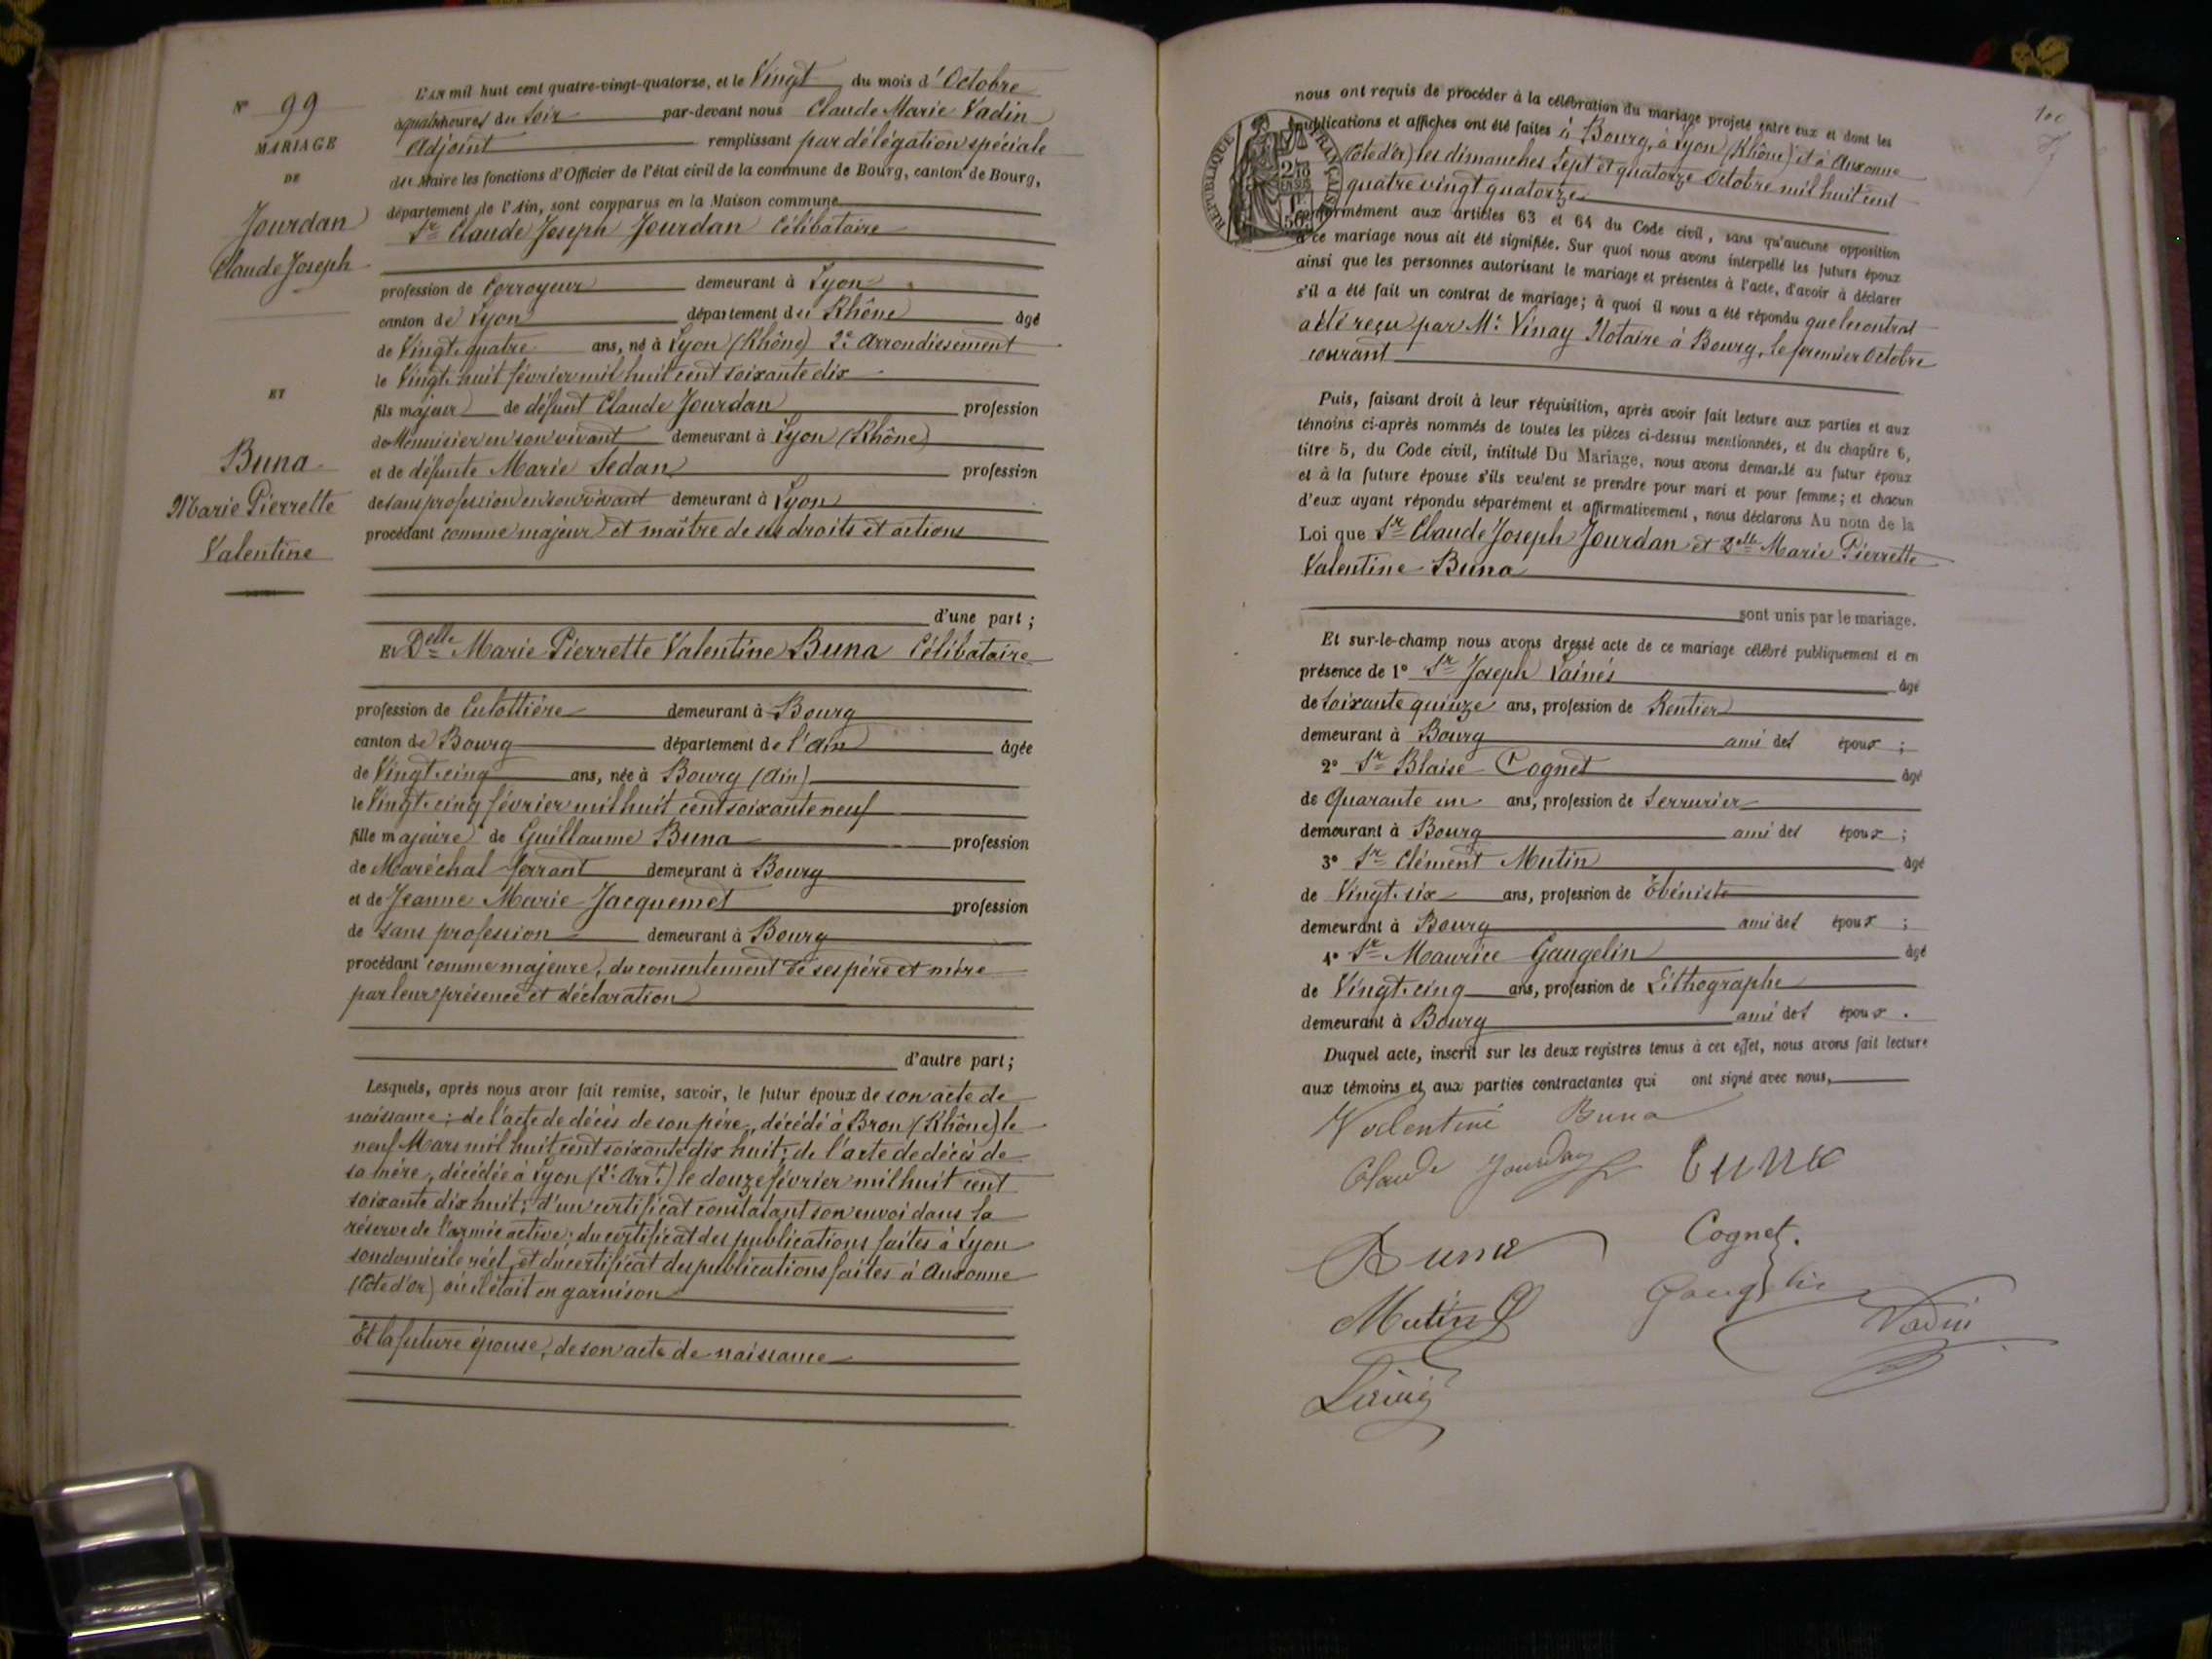 N° 99
MARIAGE
DE
Jourdan
Claude Joseph
ET
Buna
Marie Pierrette
Valentine
L'AN mil huit cent quatre-vingt-quatorze, et le Vingt du mois d'Octobre
à quatre heures du soir par-devant nous Claude Marie Vadin
Adjoint remplissant par délégation spéciale
du Maire les fonctions d'Officier de l'état civil de la commune de Bourg, canton de Bourg,
département de l'Ain, sont comparus en la Maison commune
Sr Claude Joseph Jourdan Célibataire
profession de Corroyeur demeurant à Lyon
canton de Lyon département du Rhône âgé
de Vingt-quatre ans, né à Lyon (Rhône) 2e Arrondissement
le Vingt-huit février mil huit cent soixante dix
fils majeur de défunt Claude Jourdan profession
de Menuisier en son vivant demeurant à Lyon (Rhône)
et de défunte Marie Sedan profession
de sans profession en son vivant demeurant à Lyon
procédant comme majeur et maître de ses droits et actions
d'une part ;
ET Delle Marie Pierrette Valentine Buna Célibataire
profession de Culottière demeurant à Bourg
canton de Bourg département de l'Ain âgée
de Vingt-cinq ans, née à Bourg (Ain)
le Vingt-cinq février mil huit cent soixante neuf
fille majeure de Guillaume Buna profession
de Maréchal ferrant demeurant à Bourg
et de Jeanne Marie Jacquemet profession
de sans profession demeurant à Bourg
procédant comme majeure, du consentement de ses père et mère
par leur présence et déclaration
d'autre part ;
Lesquels, après nous avoir fait remise, savoir, le futur époux de son acte de
naissance ; de l'acte de décès de son père, décédé à Bron (Rhône) le
neuf Mars mil huit cent soixante dix huit ; de l'acte de décès de
sa mère, décédée à Lyon (2e Arrt) le douze février mil huit cent
soixante dix huit ; d'un certificat constatant son envoi dans la
réserve de l'armée active ; du certificat des publications faites à Lyon
son domicile réel, et du certificat des publications faites à Auxonne
(Côte d'Or) où il était en garnison
Et la future épouse, de son acte de naissance
100
nous ont requis de procéder à la célébration du mariage projeté entre eux et dont les
publications et affiches ont été faites à Bourg, à Lyon (Rhône) et à Auxonne
(Côte d'Or) les dimanches Sept et quatorze Octobre mil huit cent
quatre vingt quatorze
RÉPUBLIQUE FRANÇAISE
2/10
EN SUS
conformément aux articles 63 et 64 du Code civil, sans qu'aucune opposition
à ce mariage nous ait été signifiée. Sur quoi nous avons interpellé les futurs époux
ainsi que les personnes autorisant le mariage et présentes à l'acte, d'avoir à déclarer
s'il a été fait un contrat de mariage ; à quoi il nous a été répondu que le contrat
a été reçu par Me Vinay Notaire à Bourg, le premier Octobre
courant
Puis, faisant droit à leur réquisition, après avoir fait lecture aux parties et aux
témoins ci-après nommés de toutes les pièces ci-dessus mentionnées, et du chapitre 6,
titre 5, du Code civil, intitulé Du Mariage, nous avons demandé au futur époux
et à la future épouse s'ils veulent se prendre pour mari et pour femme ; et chacun
d'eux ayant répondu séparément et affirmativement, nous déclarons Au nom de la
Loi que Sr Claude Joseph Jourdan et Delle Marie Pierrette
Valentine Buna
sont unis par le mariage.
Et sur-le-champ nous avons dressé acte de ce mariage célébré publiquement et en
présence de 1° Sr Joseph âgé
de soixante quinze ans, profession de Rentier
demeurant à Bourg ami des époux ;
2° Sr Blaise Cognet âgé
de Quarante un ans, profession de Serrurier
demeurant à Bourg ami des époux ;
3° Sr Clément Mutin âgé
de Vingt-six ans, profession de Ébéniste
demeurant à Bourg ami des époux ;
4° Sr Maurice Gaugelin âgé
de Vingt-cinq ans, profession de Lithographe
demeurant à Bourg ami des époux.
Duquel acte, inscrit sur les deux registres tenus à cet effet, nous avons fait lecture
aux témoins et aux parties contractantes qui ont signé avec nous,
Valentine Buna
Claude Jourdan Buna
Buna Cognet.
Mutin Gaugelin Vadin